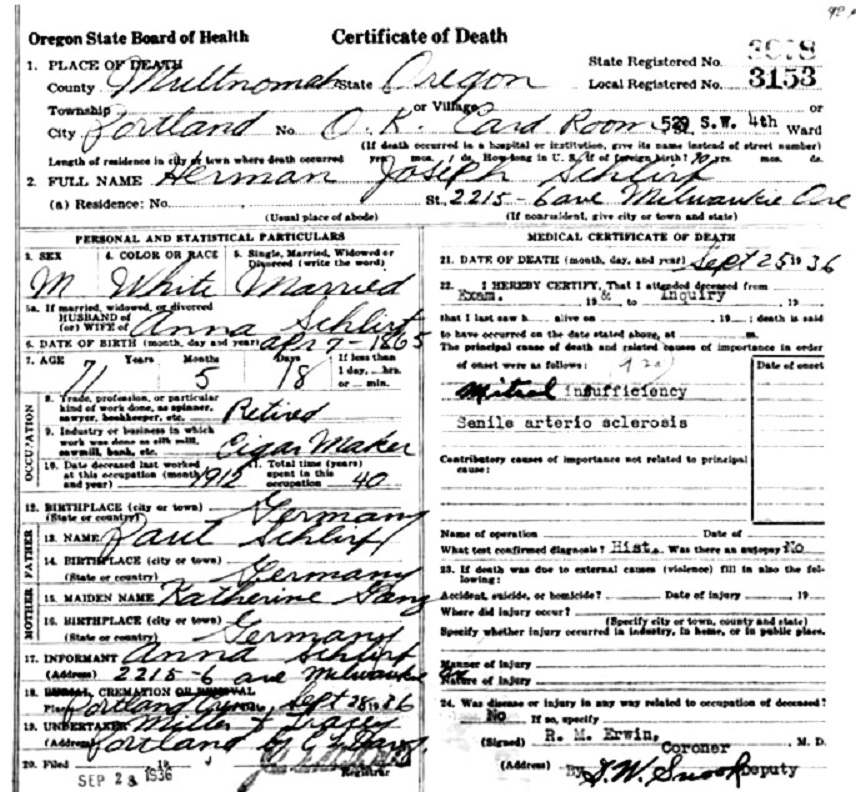 Oregon State Board of Health Certificate of Death
1. PLACE OF DEATH State Registered No.
County Multnomah State Oregon Local Registered No. 3153
Township or Village or
City Portland No. O. K. Card Room 529 S.W. 4th Ward
(If death occurred in a hospital or institution, give its name instead of street number)
Length of residence in city or town where death occurred yrs. mos. 1 ds. How long in U. S. if of foreign birth? 70 yrs. mos. ds.
2. FULL NAME Herman Joseph Schlirf
(a) Residence: No. St., 2215-6 ave Milwaukie Ore
(Usual place of abode) (If nonresident, give city or town and state)
PERSONAL AND STATISTICAL PARTICULARS
3. SEX 4. COLOR OR RACE 5. Single, Married, Widowed or
Divorced (write the word)
M White Married
5a. If married, widowed, or divorced
HUSBAND of
(or) WIFE of Anna Schlirf
6. DATE OF BIRTH (month, day and year) Apr 7-1865
7. AGE Years Months Days If less than
1 day, hrs.
or min.
71 5 18
OCCUPATION
8. Trade, profession, or particular
kind of work done, as spinner,
sawyer, bookkeeper, etc. Retired
9. Industry or business in which
work was done as silk mill,
sawmill, bank, etc. Cigar Maker
10. Date deceased last worked
at this occupation (month
and year) 1912
11. Total time (years)
spent in this
occupation 40
12. BIRTHPLACE (city or town)
(State or country) Germany
FATHER
13. NAME Paul Schlirf
14. BIRTHPLACE (city or town)
(State or country) Germany
MOTHER
15. MAIDEN NAME Katherine Gang
16. BIRTHPLACE (city or town)
(State or country) Germany
17. INFORMANT Anna Schlirf
(Address) 2215-6 ave Milwaukie Ore
18. BURIAL, CREMATION OR REMOVAL
Place Portland Crem, Date Sept 28 1936
19. UNDERTAKER Miller & Tracey
(Address) Portland by
20. Filed 19
SEP 28 1936 Registrar
MEDICAL CERTIFICATE OF DEATH
21. DATE OF DEATH (month, day, and year) Sept 25 1936
22. I HEREBY CERTIFY, That I attended deceased from
Exam. 19 & to Inquiry, 19
that I last saw h alive on 19 ; death is said
to have occurred on the date stated above, at m.
The principal cause of death and related causes of importance in order
of onset were as follows: Date of onset
Mitral insufficiency
Senile arterio sclerosis
Contributory causes of importance not related to principal
cause:
Name of operation Date of
What test confirmed diagnosis? Hist. Was there an autopsy No
23. If death was due to external causes (violence) fill in also the fol-
lowing:
Accident, suicide, or homicide? Date of injury 19
Where did injury occur?
(Specify city or town, county and state)
Specify whether injury occurred in industry, in home, or in public place.
Manner of injury
Nature of injury
24. Was disease or injury in any way related to occupation of deceased?
No If so, specify
(Signed) R. M. Erwin, M. D.
Coroner
(Address) By T. W. Snook Deputy